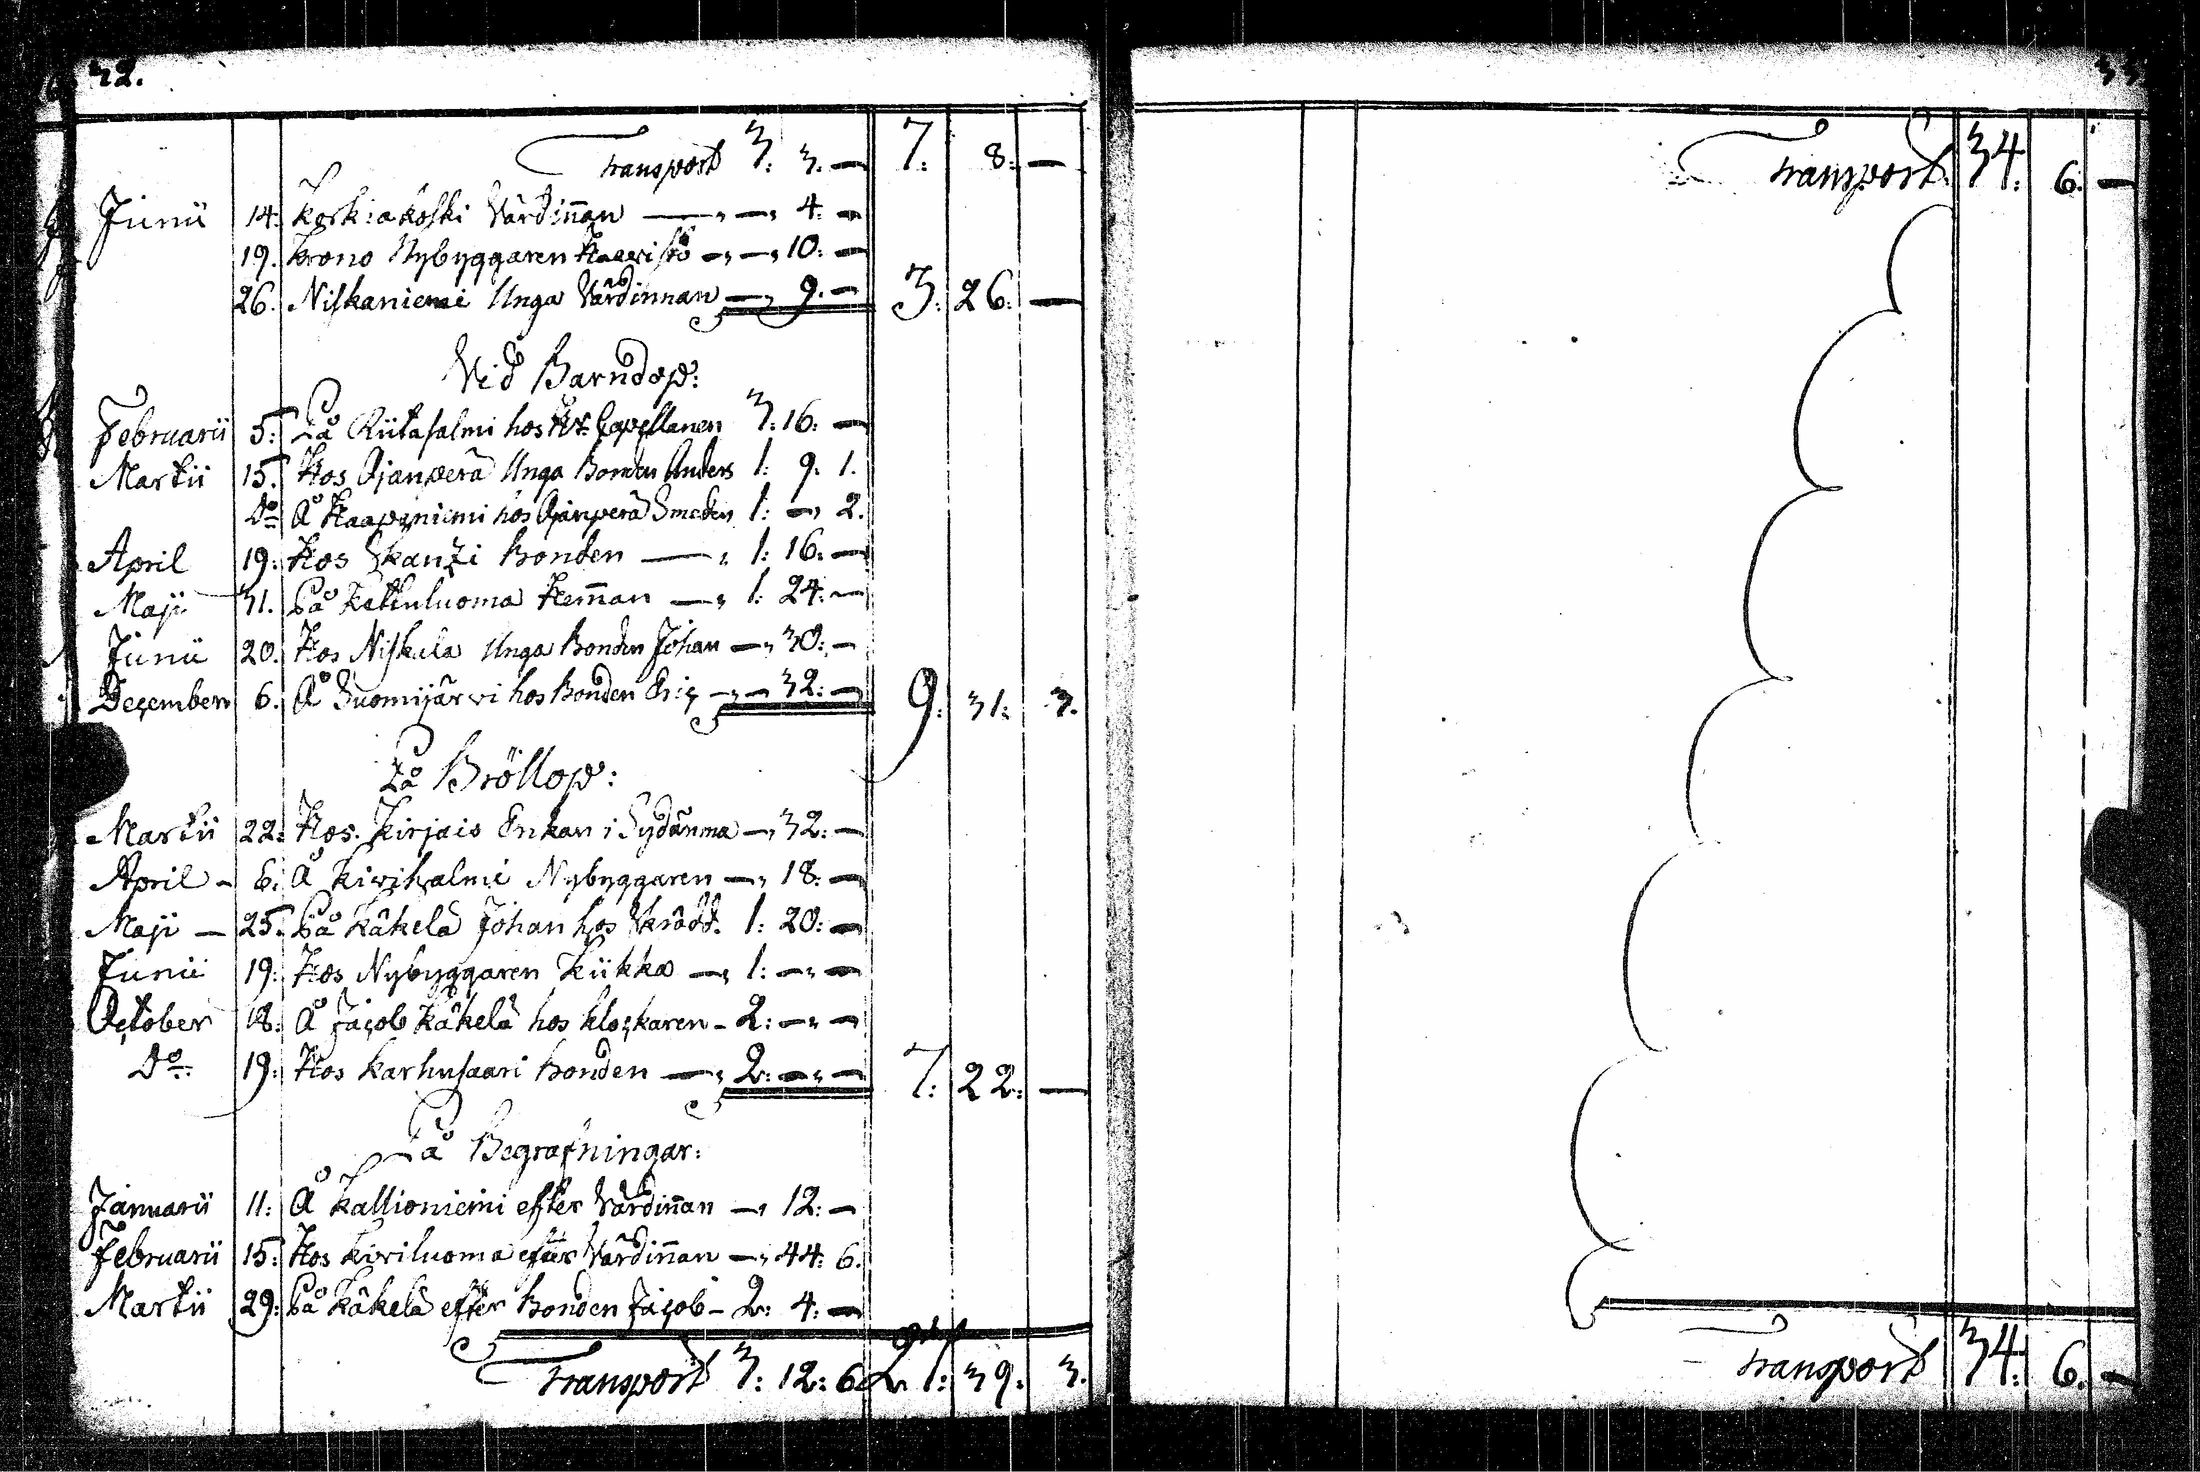 32.
Transport 3: 3. — 7: 8: —
Junii 14. Korkiakoski Värdiñan —, —, 4: —
19. Krono Nybyggaren —, —, 10: —
26. Niskaniemi Unga Värdinnan —, 9. — 3: 26: —
Vid Barndop:
Februarii 5: På Riitasalmi hos Hr. Capellanen 3: 16: —
Martii 15. Hos Ojanperä Unga Bonden Anders 1: 9. 1.
Do Å Haapaniemi hos Ojanperä Smeden 1: —, 2.
April 19: Hos Skanzi Bonden —, 1: 16: —
Maji 31. På Kettuluoma Hem̃an —, 1: 24: —
Junii 20. Hos Niskala Unga Bonden Johan —, 30: —
December 6. Å Suomijärvi hos Bonden Eric —, — 32: — 9: 31: 3.
På Bröllop:
Martii 22: Hos Kirjais Enkan i Sydänma —, 32: —
April — 6: Å Nybyggaren —, 18: —
Maji — 25. På Käkelä Johan hos Skrädd. 1: 20: —
Junii 19: Hos Nybyggaren Kiikka —, 1: —, —
October 18: Å Jacob Käkelä hos Klockaren — 2: —, —
Do 19: Hos Karhusaari Bonden —, 2: —, — 7: 22: —
På Begrafningar:
Januarii 11: Å Kallioniemi efter Värdiñan —, 12: —
Februarii 15: Hos Kiviluoma efter Värdiñan —, 44: 6.
Martii 29: På Käkelä efter Bonden Jacob — 2: 4: —
Transport 3: 12: 6 1: 39: 3.
33
Transport 34: 6: —
Transport 34: 6. —